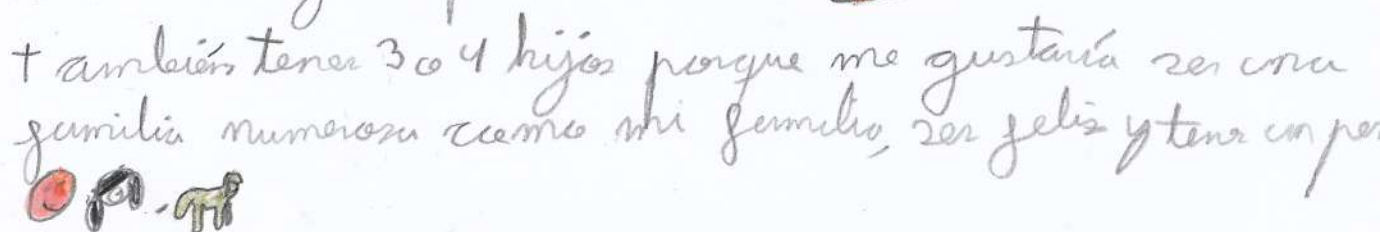 también tener 3 o 4 hijos porque me gustaría ser una
familia numerosa como mi familia, ser feliz y tener un per